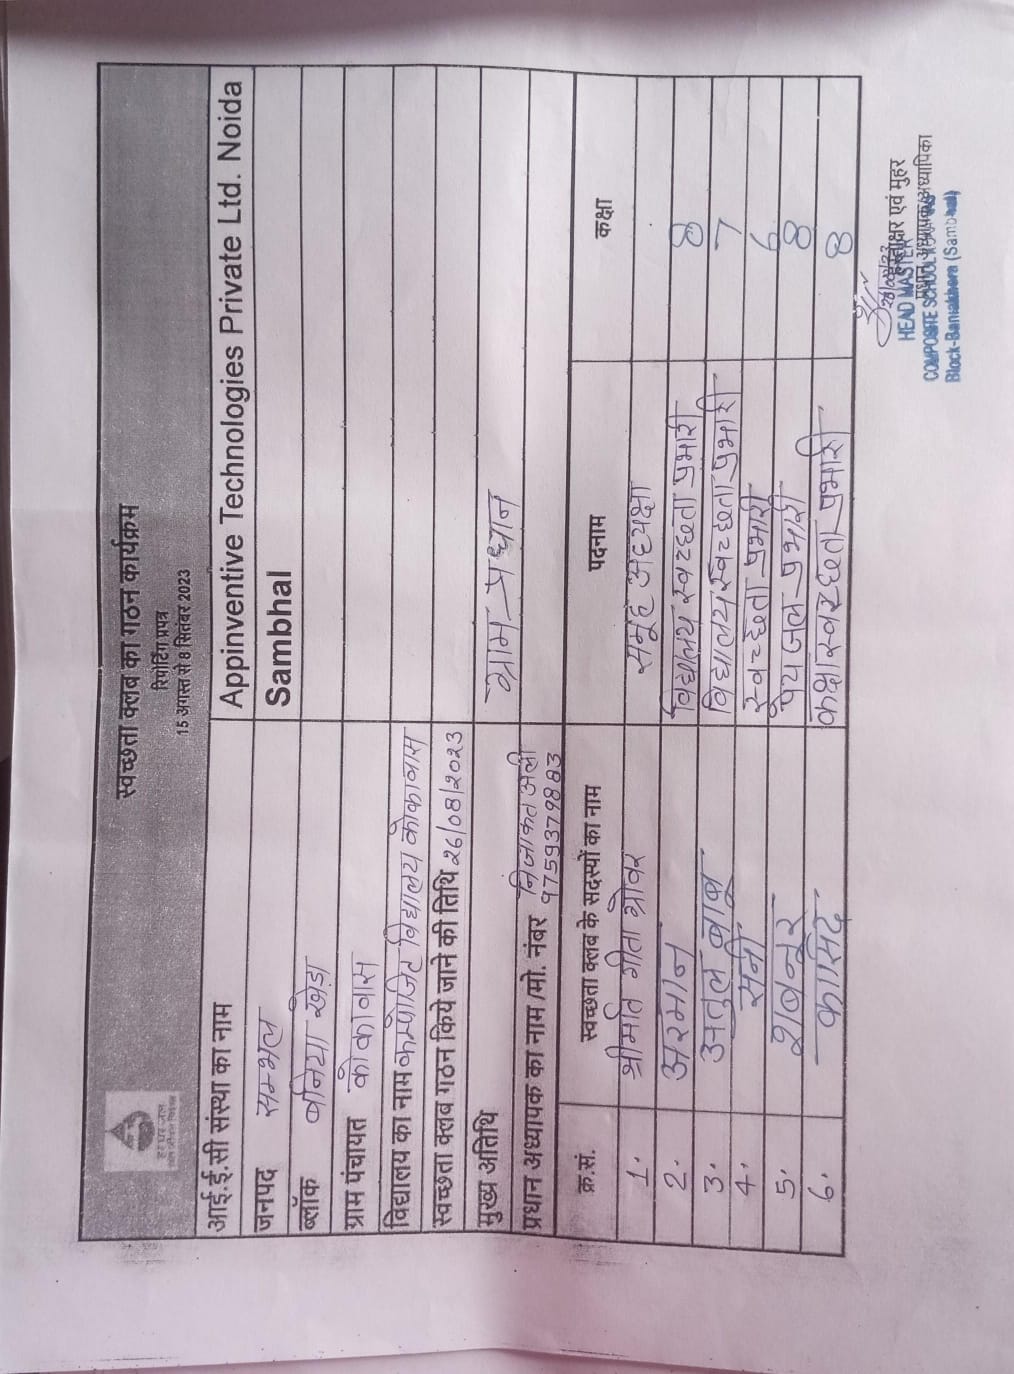 स्वच्छता क्लब का गठन कार्यक्रम
रिपोर्टिंग प्रपत्र
15 अगस्त से 8 सितंबर 2023
हर घर जल
आई.ई.सी संस्था का नाम Appinventive Technologies Private Ltd. Noida
जनपद सम्भल Sambhal
ब्लॉक बनिया खेड़ा
ग्राम पंचायत कोकावास
विद्यालय का नाम कम्पोजिट विद्यालय कोकावास
स्वच्छता क्लब गठन किये जाने की तिथि 26/08/2023
मुख्य अतिथि ग्राम प्रधान
प्रधान अध्यापक का नाम /मो. नंबर निजाकत अली
9759379883
क्र.सं. स्वच्छता क्लब के सदस्यों का नाम पदनाम कक्षा
1. श्रीमति गीता ग्रोवर समूह अध्यक्षा
2. अरमान विद्यालय स्वच्छता प्रभारी 8
3. अतुल बाबू विद्यालय स्वच्छता प्रभारी 7
4. सनी स्वच्छता प्रभारी 6
5. शबनूर पेय जल प्रभारी 8
6. कासिद कक्षा स्वच्छता प्रभारी 8
हस्ताक्षर एवं मुहर
HEAD MASTER
प्रधान अध्यापक/अध्यापिका
COMPOSITE SCHOOL
Block-Baniakhera (Sambhal)